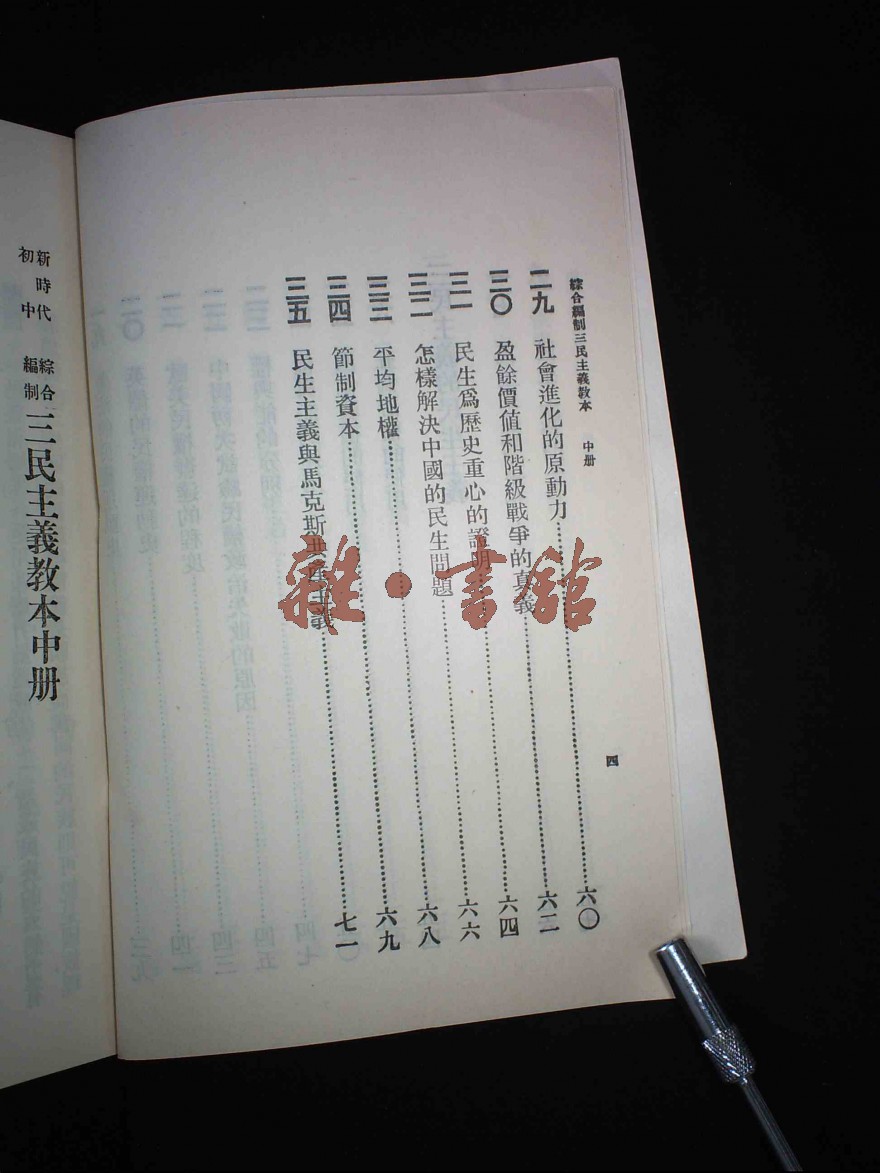 綜合編制三民主義教本 中册
四
二九 社會進化的原動力……六〇
三〇 盈餘價値和階級戰爭的真義……六二
三一 民生爲歷史重心的證明……六四
三二 怎樣解決中國的民生問題……六六
三三 平均地權……六八
三四 節制資本……六九
三五 民生主義與馬克斯共產主義……七一
新時代
初中
綜合
編制
三民主義教本中册
雜·書館